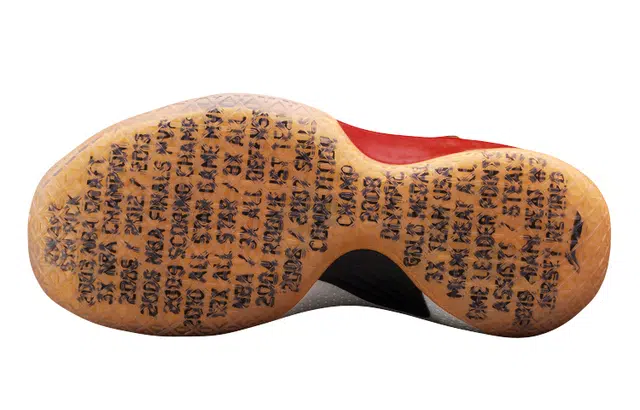 5TH PICK
2003 NBA DRAFT
3X NBA CHAMPION
2006 / 2012 / 2013
2006 NBA FINALS MVP
2009 SCORING CHAMP
2010 ALL STAR GAME MVP
13X ALL STAR / 8X ALL
NBA / 3X ALL
2004 ROOKIE 1ST TEAM
2006 / 2007 SKILLS
COMPETITION
CHAMP
2008
OLYMPIC
GOLD MEDAL
3X TEAM USA
MIAMI HEAT ALL
TIME LEADER POINTS
ASSIST / STEALS
2019 MIAMI HEAT #3
JERSEY RETIRED